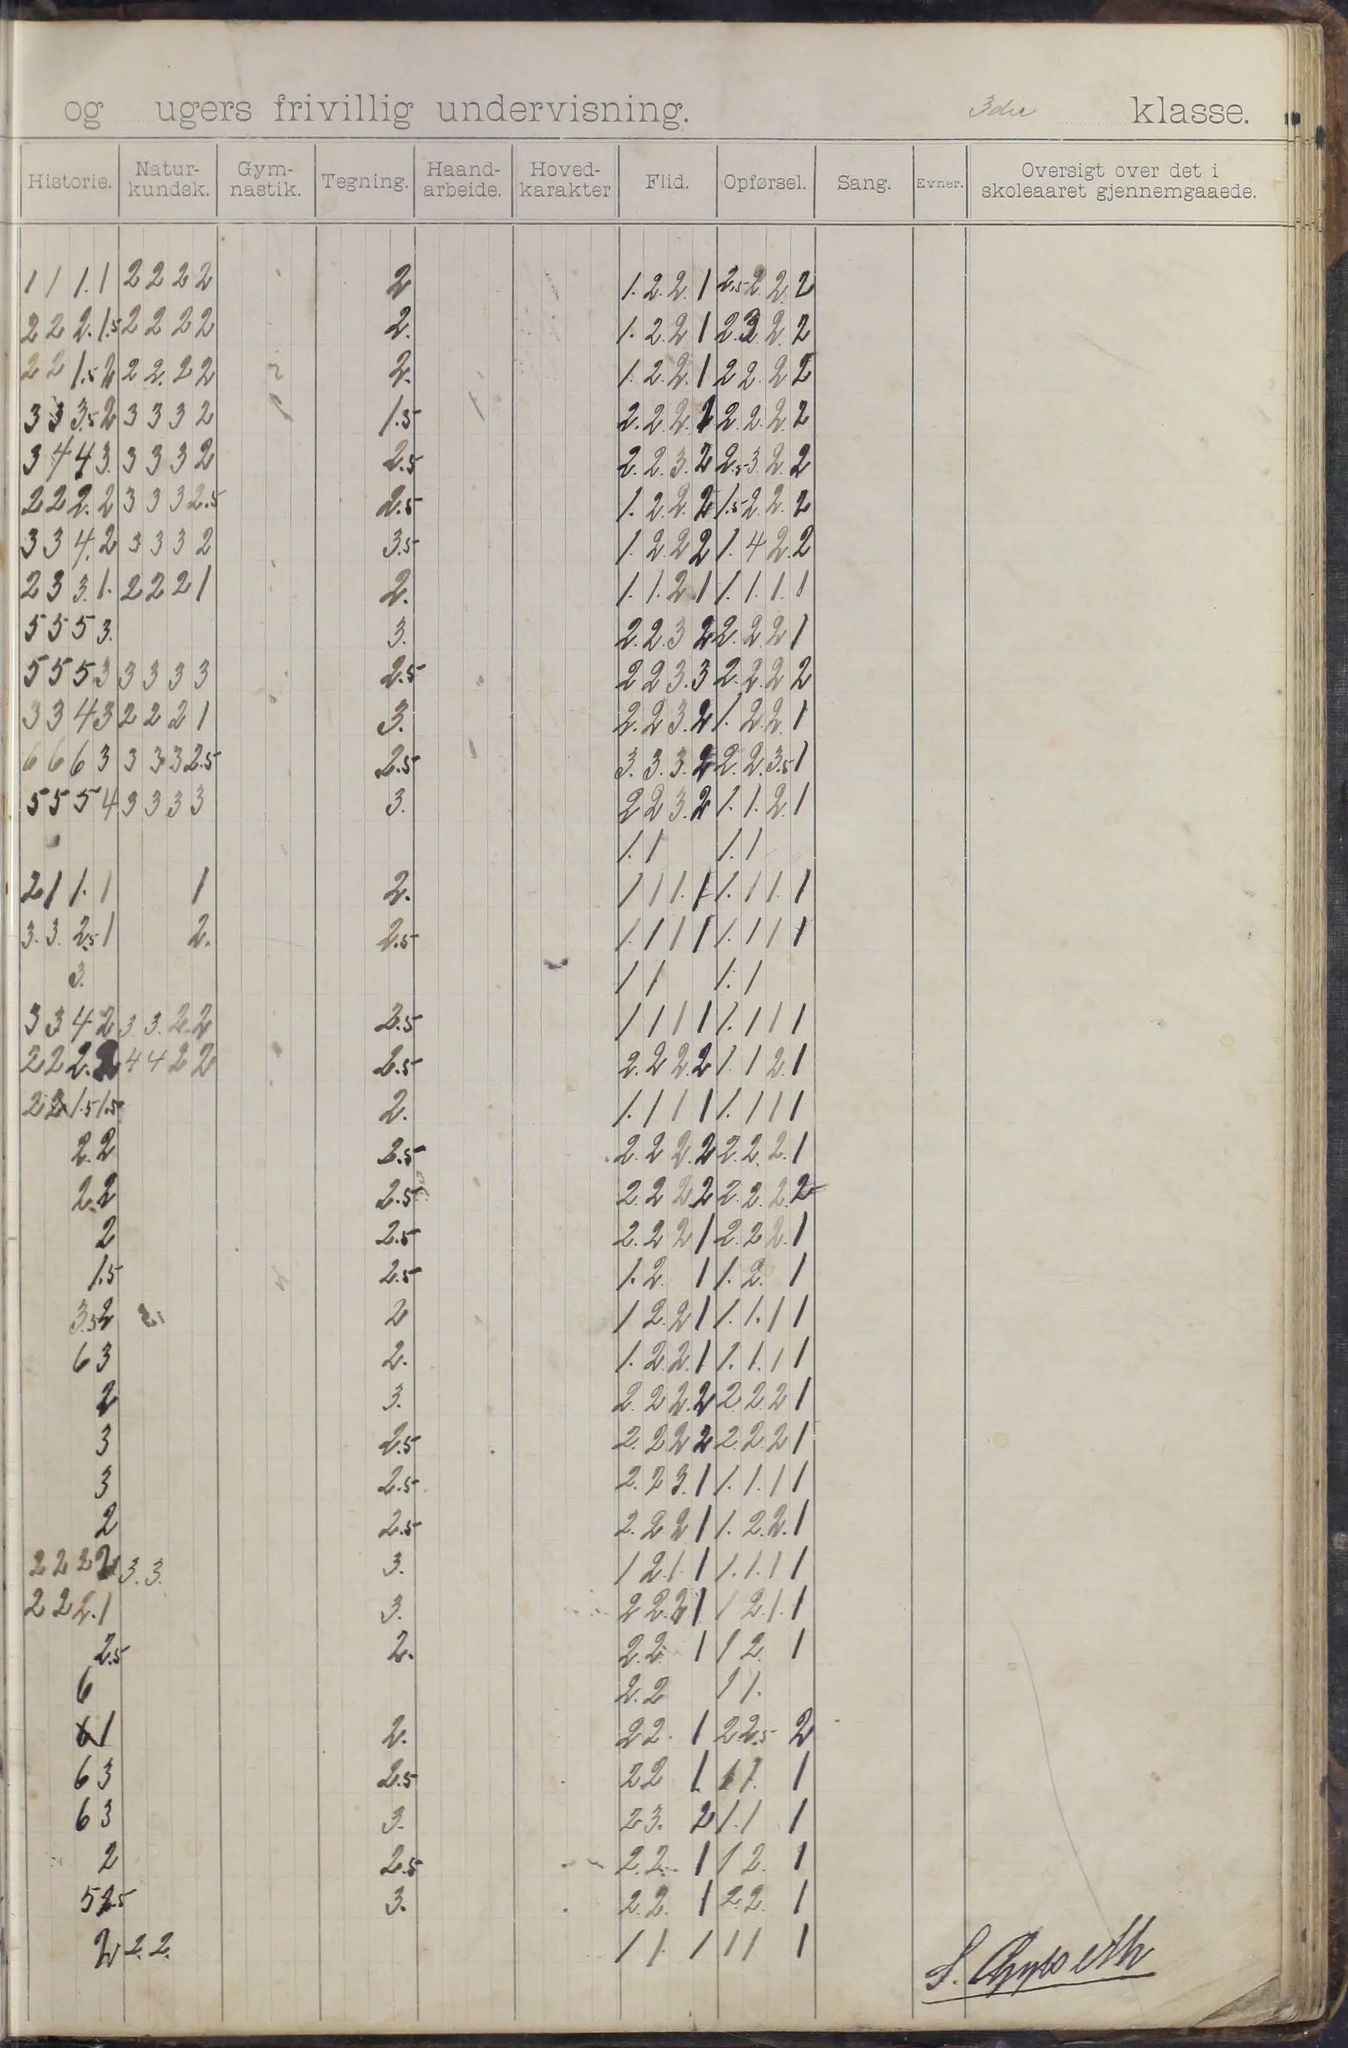 og ugers frivillig undervisning. 3die klasse.
Historie. Natur-kundsk. Gym-nastik. Tegning. Haand-arbeide. Hoved-karakter Flid. Opførsel. Sang. Evner. Oversigt over det i skoleaaret gjennemgaaede.
1 1 1. 1 2 2 2 2 2 1. 2. 2. 1 2.5 2. 2. 2
2 2 2. 1.5 2 2 2 2 2. 1. 2 2 1 2. 3 2. 2
2 2 1.5 2 2 2. 2 2 2. 1. 2. 2. 1 2 2. 2 2
3 3 3.5 2 3 3 3 2 1.5 2. 2. 2 2 2. 2. 2. 2
3 4 4 3. 3 3 3 2 2.5 2. 2. 3. 2 2.5 3. 2. 2
2 2 2. 2 3 3 3 2.5 2.5 1. 2. 2. 2 1.5 2. 2. 2
3 3 4. 2 3 3 3 2 3.5 1. 2. 2 2 1. 4 2. 2
2 3 3. 1. 2 2 2 1 2. 1. 1. 2 1 1. 1. 1. 1
5 5 5 3. 3. 2. 2. 3 2 2. 2. 2 1
5 5 5 3 3 3 3 3 2.5 2 2 3. 3 2. 2. 2 2
3 3 4 3 2 2 2 1 3. 2. 2 3. 2 1. 2. 2. 1
6 6 6 3 3 3 3 2.5 2.5 3. 3. 3. 2 2. 2. 3.5 1
5 5 5 4 3 3 3 3 3. 2 2 3. 2 1. 1. 2. 1
1. 1 1. 1
2 1 1. 1 1 2. 1 1 1. 1 1. 1 1. 1
3. 3. 2.5 1 2. 2.5 1. 1 1 1 1. 1 1 1
3. 1 1 1. 1
3 3 4 2 3 3. 2. 2 2.5 1 1 1 1 1. 1 1 1
2 2 2. 2 4 4 2 2 2.5 2. 2 2 2 1. 1 2. 1
2 2 1.5 1.5 2. 1. 1 1 1 1. 1 1 1
2. 2 2.5 2. 2 2. 2 2. 2. 2. 1
2. 2 2.5 2. 2 2 2 2. 2. 2. 2
2 2.5 2. 2 2 1 2. 2 2. 1
1.5 2.5 1. 2. 1 1. 2. 1
3.5 2 2 1 2. 2 1 1. 1. 1 1
6 3 2. 1. 2 2 1 1. 1. 1 1
2 3. 2. 2 2. 2 2. 2 2 1
3 2.5 2. 2 2 2 2. 2 2 1
3 2.5 2. 2 3. 1 1. 1. 1 1
2 2.5 2. 2 2 1 1. 2. 2. 1
2 2 2 2 3. 3. 3. 1 2. 1. 1 1. 1. 1 1
2 2 2. 1 3. 2 2. 2 1 1 2. 1. 1
2.5 2. 2. 2. 1 1 2. 1
6 2. 2 1 1.
1 2. 2 2. 1 2 2.5 2
6 3 2.5 2 2 1 1 1. 1
6 3 3. 2 3. 2 1. 1 1
2 2.5 2. 2. 1 1 2. 1
5 2.5 3. 2. 2. 1 2. 2. 1
2 2. 2. 1 1. 1 1 1 1